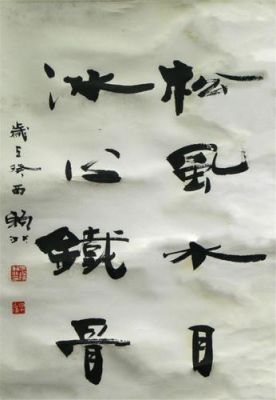 松風水月
冰心鐵骨
歲在癸酉